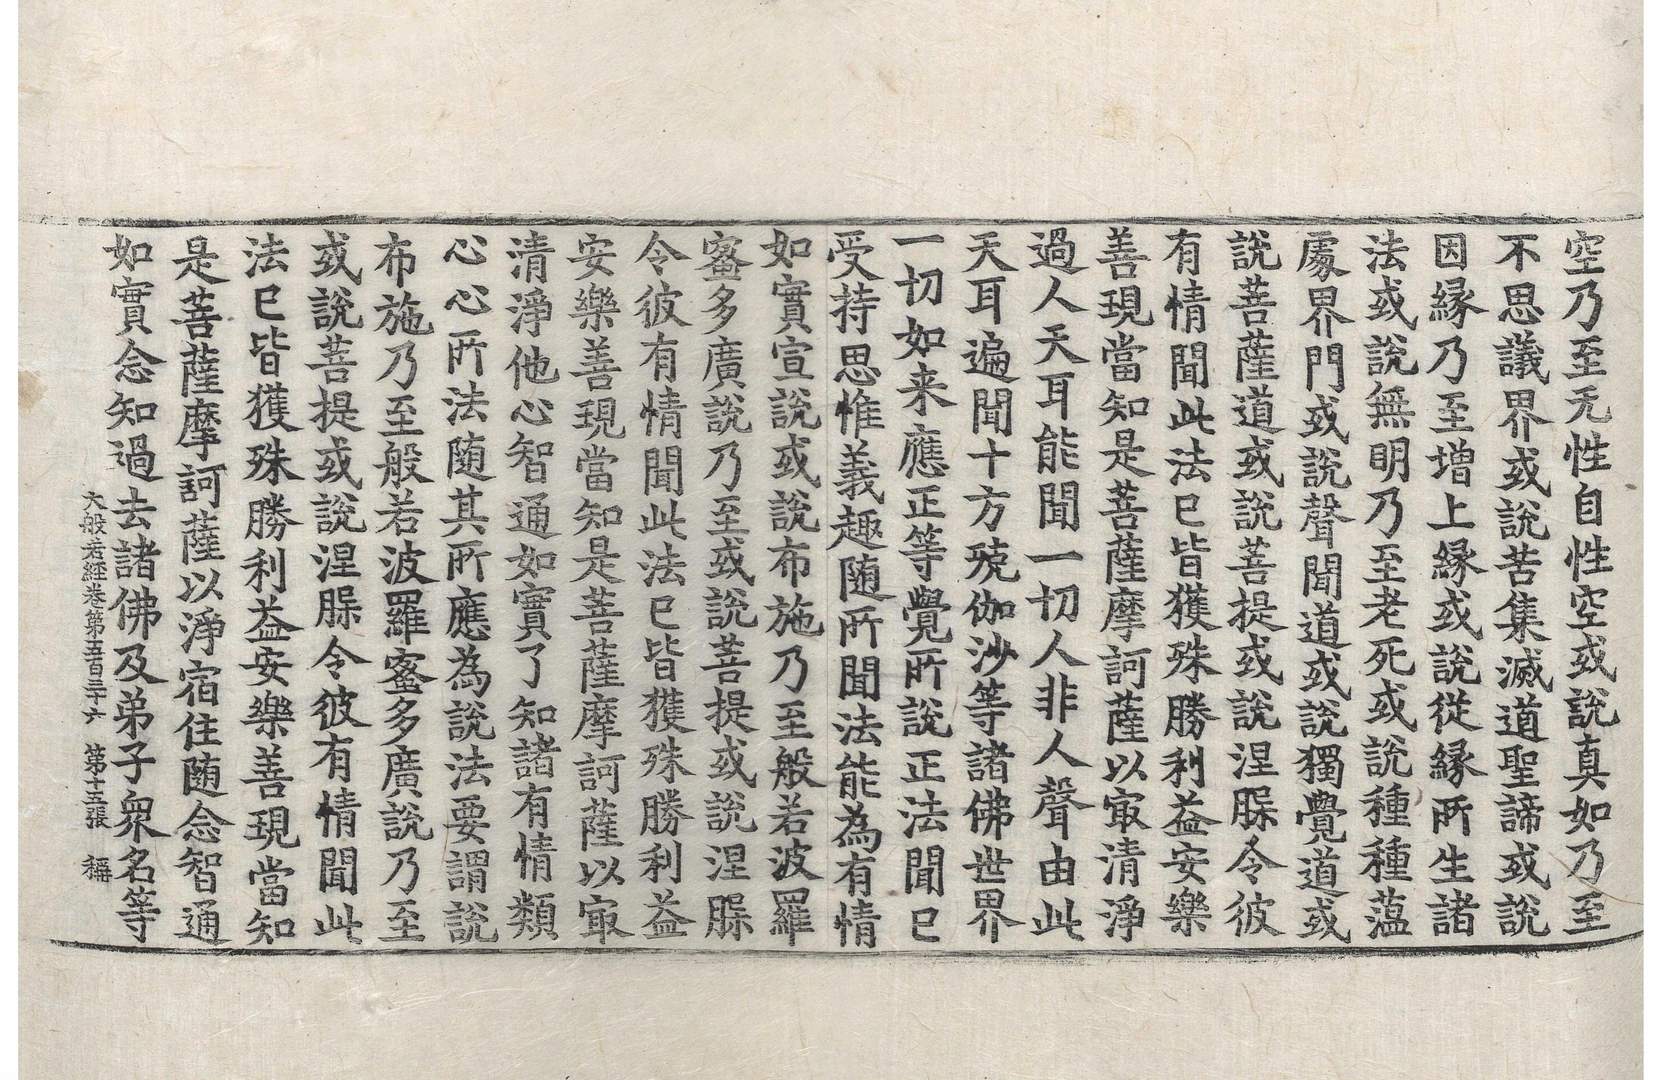 空乃至无性自性空或說真如乃至
不思議界或說苦集滅道聖諦或說
因縁乃至增上縁或說從縁所生諸
法或說無明乃至老死或說種種蕴
處界門或說聲聞道或說獨覺道或
說菩薩道或說菩提或說涅槃令彼
有情聞此法已皆獲殊勝利益安樂
善現當知是菩薩摩訶薩以㝡清淨
過人天耳能聞一切人非人聲由此
天耳遍聞十方殑伽沙等諸佛世界
一切如来應正等覺所說正法聞已
受持思惟義趣随所聞法能為有情
如實宣說或說布施乃至般若波羅
蜜多廣說乃至或說菩提或說涅槃
令彼有情聞此法已皆獲殊勝利益
安樂善現當知是菩薩摩訶薩以㝡
清淨他心智通如實了知諸有情類
心心所法随其所應為說法要謂說
布施乃至般若波羅蜜多廣說乃至
或說菩提或說涅槃令彼有情聞此
法已皆獲殊勝利益安樂善現當知
是菩薩摩訶薩以淨宿住随念智通
如實念知過去諸佛及弟子衆名等
大般若經卷第五百三十六 第十五張 稱